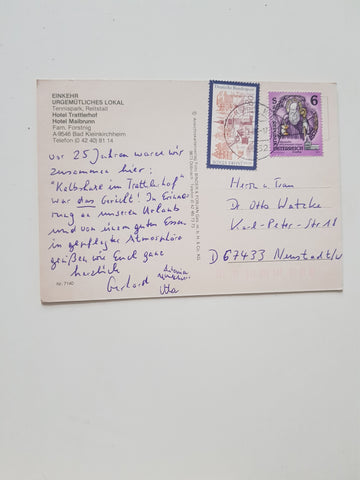 EINKEHR
URGEMÜTLICHES LOKAL
Tennispark, Reitstall
Hotel Trattlerhof
Hotel Maibrunn
Fam. Forstnig
A-9546 Bad Kleinkirchheim
Telefon (0 42 40) 81 14
vor 25 Jahren waren wir
zusammen hier:
"Kalbshaxe im Trattlerhof"
war das Gericht! In Erinne-
rung an unseren Urlaub
und von einem guten Essen
in gepflegter Atmosphäre
grüßen wir Euch ganz
herzlich
Gerhard
Utta
Nr. 7140
Deutsche Bundespost
S 6
ÖSTERREICH
Herrn u. Frau
Dr. Otto Watzke
Karl-Peter-Str 18
D 67433 Neustadt/W